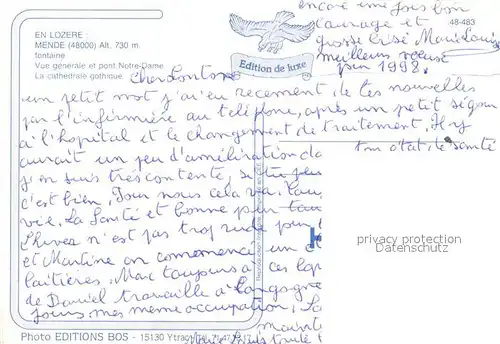 EN LOZERE :
MENDE (48000) Alt. 730 m.
fontaine
Vue générale et pont Notre-Dame
La cathédrale gothique
48-483
Edition de luxe
encore une fois bon
courage et
grosse bise Marie Louise
meilleurs vœux
pour 1998.
Cher
un petit mot j'ai eu recement de tes nouvelles
par l'infirmière au téléphone, après un petit séjour
à l'hopital et le changement de traitement. Il y
aurait un peu d'amélioration da
ton état de santé
j'en suis très contente, si tu peu
c'est bien. Pour nous cela va.
vie. La Santé et bonne pour tou
L'hiver n'est pas trop rude pour
et Martine on comencé un
laitières. Marc toujours a ces lap
de Daniel travaille a Langogne
jours mes même occupation,
mainte
toute
privacy protection
Datenschutz
Photo EDITIONS BOS - 15130 Ytrac